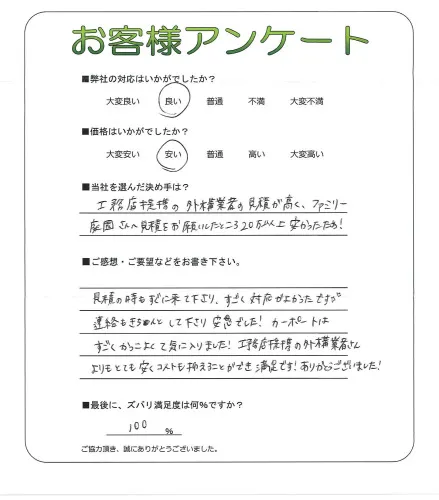 お客様アンケート
■弊社の対応はいかがでしたか?
大変良い 良い 普通 不満 大変不満
■価格はいかがでしたか?
大変安い 安い 普通 高い 大変高い
■当社を選んだ決め手は?
工務店提携の外構業者の見積が高く、ファミリー
庭園さんへ見積をお願いしたところ20万以上安かったため!
■ご感想・ご要望などをお書き下さい。
見積の時もすぐに来て下さり、すごく対応がよかったですが
連絡もきちんとして下さり安心でした! カーポートは
すごくかっこよくて気に入りました! 工務店提携の外構業者さん
よりもとても安くコストも抑えることができ満足です! ありがとうございました!
■最後に、ズバリ満足度は何%ですか?
100 %
ご協力頂き、誠にありがとうございました。